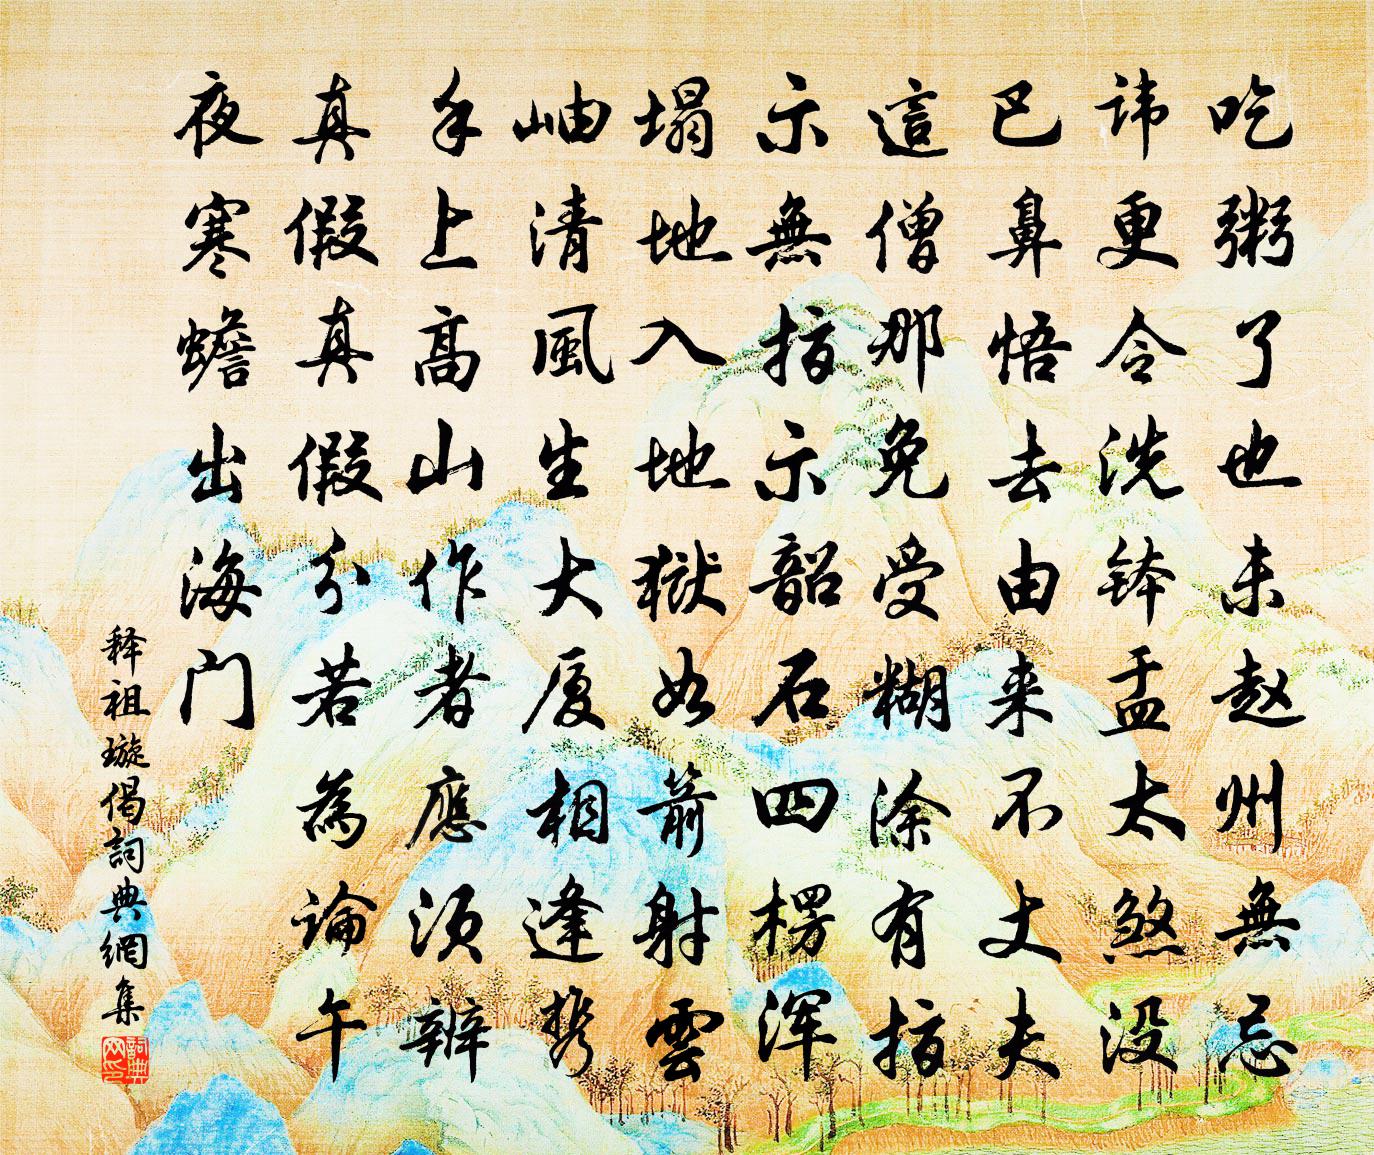 吃粥了也未赵州無忌
讳更令洗钵盂太煞没
巴鼻悟去由来不丈夫
這僧那免受糊涂有指
示無指示韶石四楞浑
塌地入地獄如箭射雲
岫清風生大厦相逢携
手上高山作者應须辨
真假真假分若為論午
夜寒蟾出海门
释祖璇偈詞典網集
詞典网印